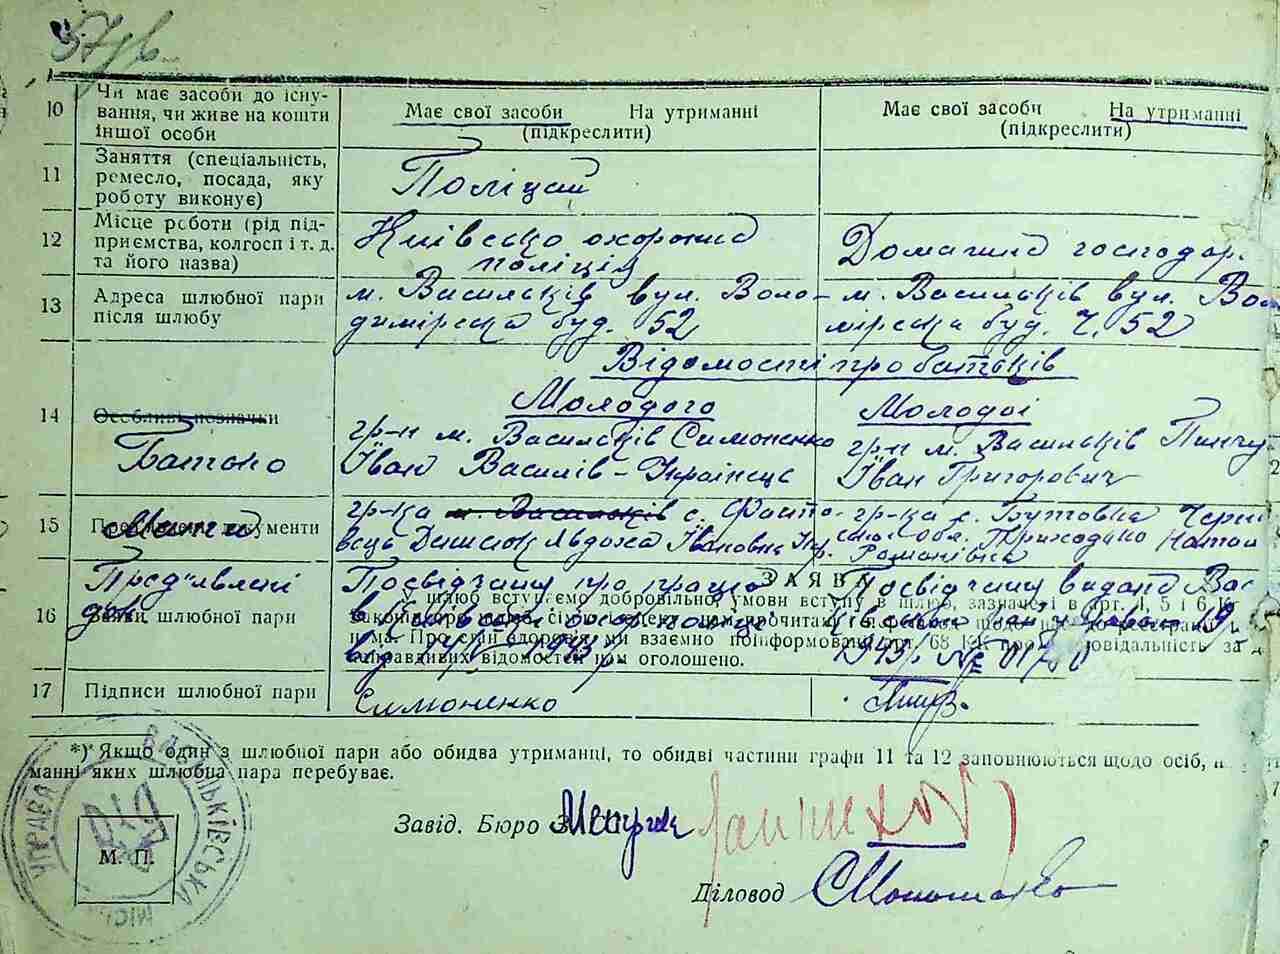 57/в
10 Чи має засоби до існу-
вання, чи живе на кошти
іншої особи
Має свої засоби На утриманні
(підкреслити)
Має свої засоби На утриманні
(підкреслити)
11 Заняття (спеціальність,
ремесло, посада, яку
роботу виконує)
Поліцай
12 Місце роботи (рід під-
приємства, колгосп і т. д.
та його назва)
Київсько охорона
поліція
Домашнє господар.
13 Адреса шлюбної пари
після шлюбу
м. Васильків вул. Воло-
димірска буд. 52
м. Васильків вул. Во
мірська буд. Ч. 52
Відомості про батьків
14 Особливі позначки
Батько
Молодого
гр-н м. Васильків Симоненко
Іван Василів - Українець
Молодої
гр-н м. Васильків Пинчу
Іван Григорович
15 Пред'явлені документи
Мати
гр-ка м. Васильків с. Фасто-
вець Денисюк Явдоха Івановна Укр.
гр-ка с. Бутовка Черни
обл. Приходько Натал
Романівна
Пред'явлені
док
Посвідчення про працю
1943 р.
Посвідчення видано Вас
1943 р. № 01780
ЗАЯВА
16 шлюбної пари
У шлюб вступаємо добровільно, умови вступу в шлюб, зазначені в арт. 4, 5 і 6
прочитані
Про стан здоров'я ми взаємно поінформовані, арт. 68 КК про відповідальність за
неправдивих відомостей нам оголошено.
17 Підписи шлюбної пари
Симоненко
*) Якщо один з шлюбної пари або обидва утриманці, то обидві частини графи 11 та 12 заповнюються щодо осіб, н
манні яких шлюбна пара перебуває.
Завід. Бюро ЗАГС
Діловод
М. П.
ВАСИЛЬКІВСЬКА МІСЬ УПРАВА